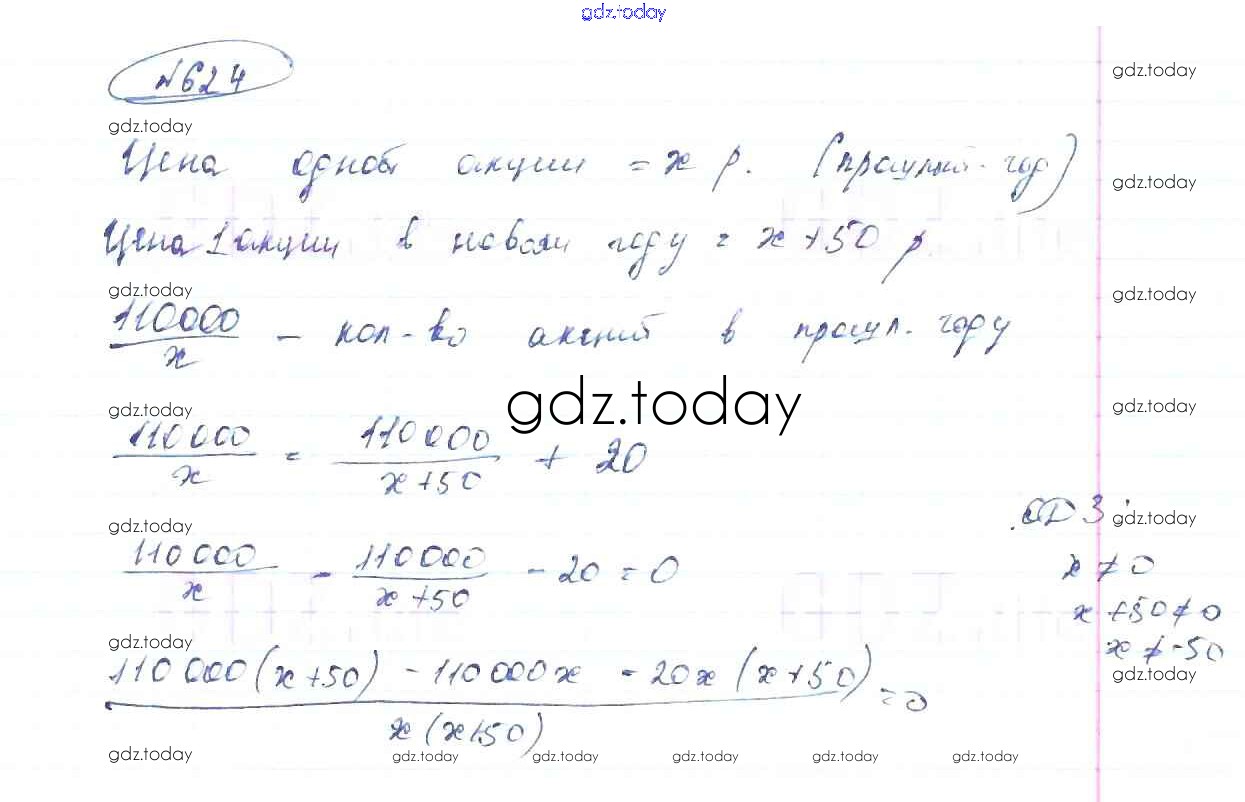 gdz.today
№624
gdz.today
gdz.today
Цена одной акции = x р. (прошлый год)
gdz.today
Цена 1 акции в новом году = x+50 р.
gdz.today
gdz.today
110000/x — кол-во акций в прошл. году
gdz.today
gdz.today
gdz.today
110000/x = 110000/(x+50) + 20
ОДЗ:
gdz.today
gdz.today
110000/x - 110000/(x+50) - 20 = 0
x ≠ 0
x+50≠0
x ≠ -50
gdz.today
gdz.today
(110000(x+50) - 110000x - 20x(x+50))/(x(x+50)) = 0
gdz.today gdz.today gdz.today gdz.today gdz.today gdz.today